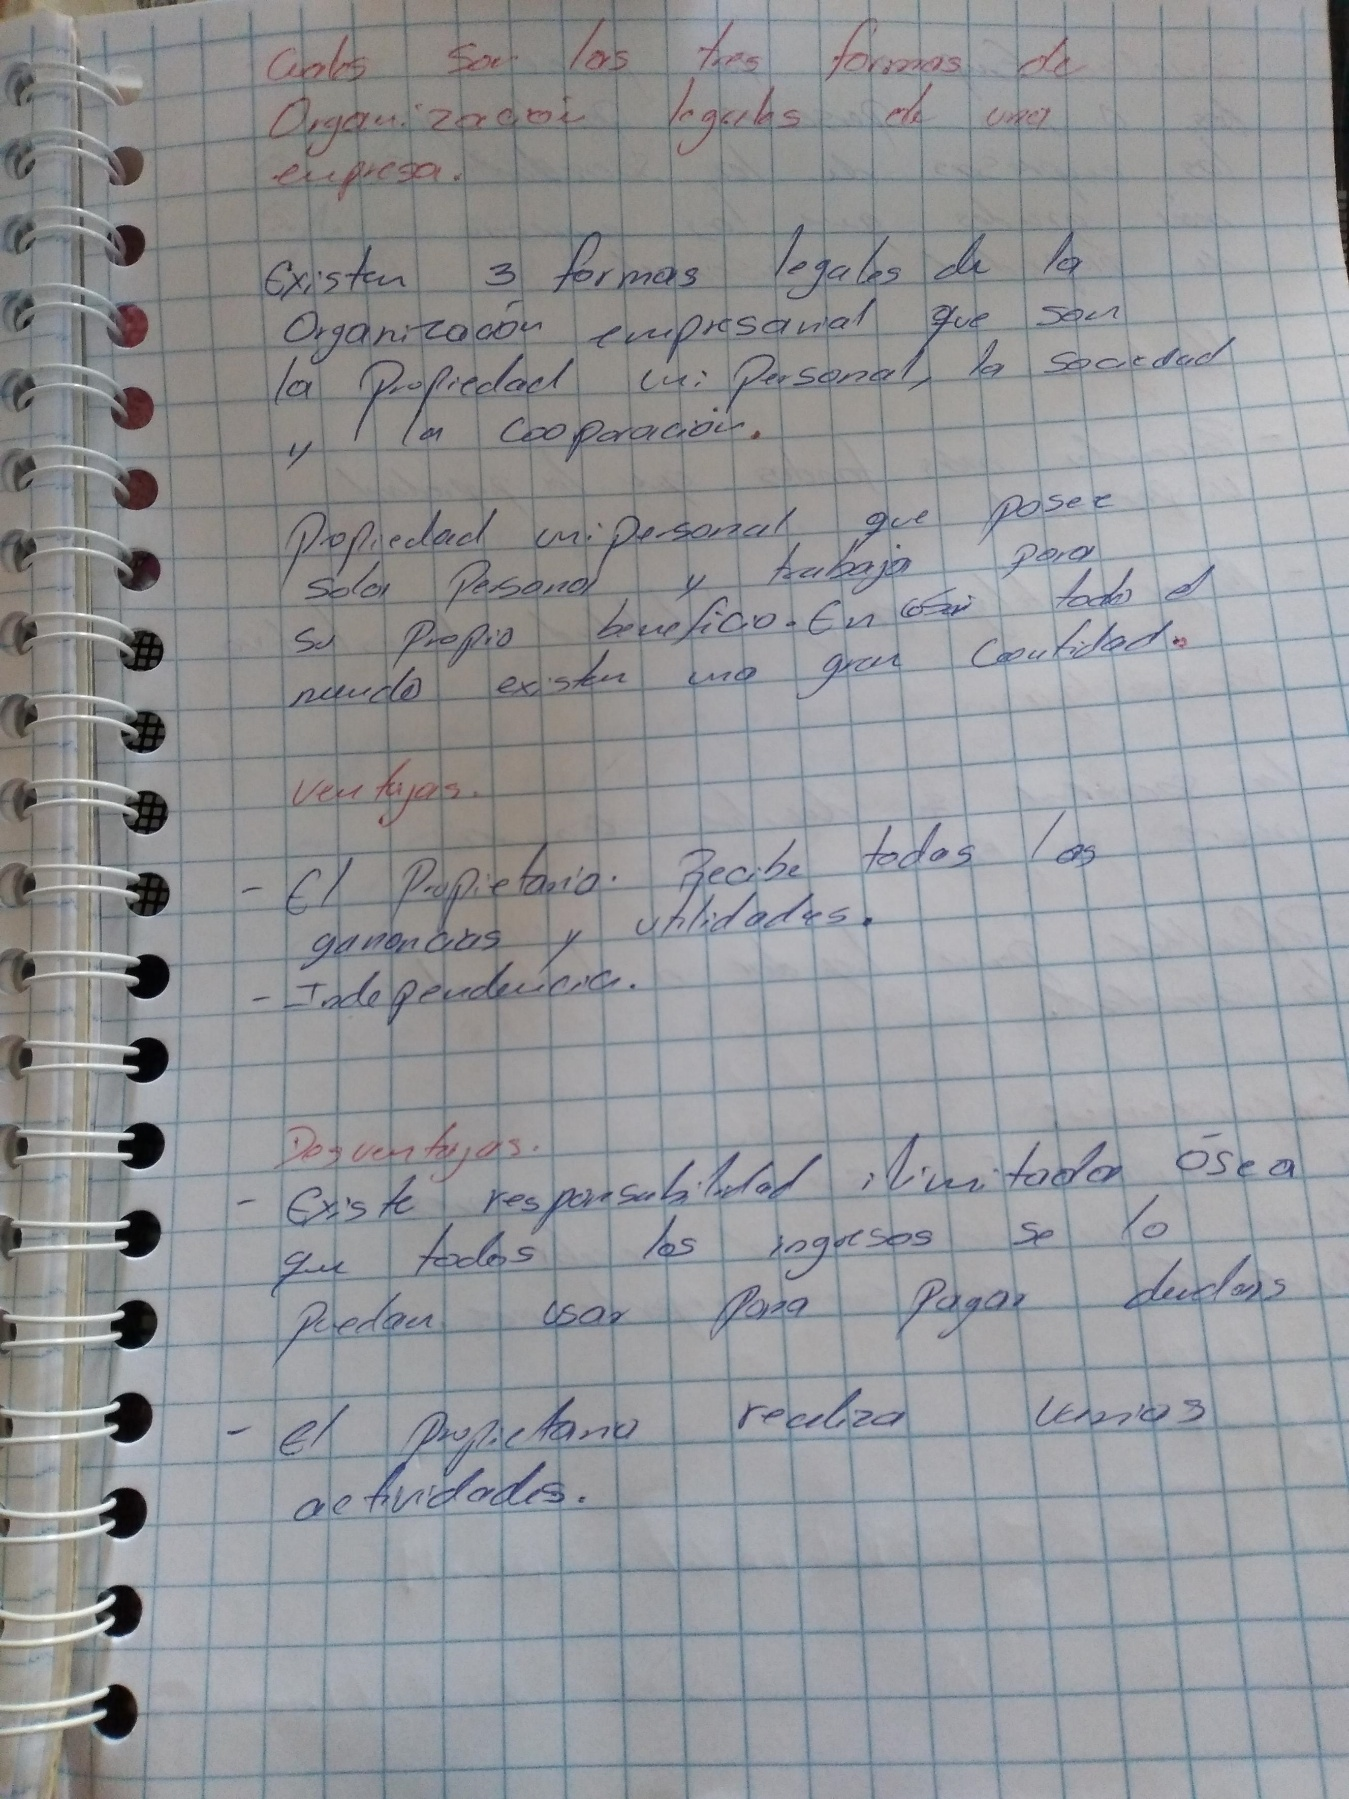 Cuales son las tres formas de
Organización legales de una
empresa.
Existen 3 formas legales de la
Organización empresarial que son
la Propiedad unipersonal, la sociedad
y la Cooporación.
Propiedad unipersonal que posee
sola Persona y trabaja para
su propio beneficio. En casi todo el
mundo existen una gran Cantidad.
Ventajas.
- El Propietario. Recibe todas las
ganancias y utilidades.
- Independencia.
Desventajas.
- Existe responsabilidad ilimitada Ósea
que todos los ingresos se lo
puedan usar para pagar deudas
- El propietario realiza varias
actividades.